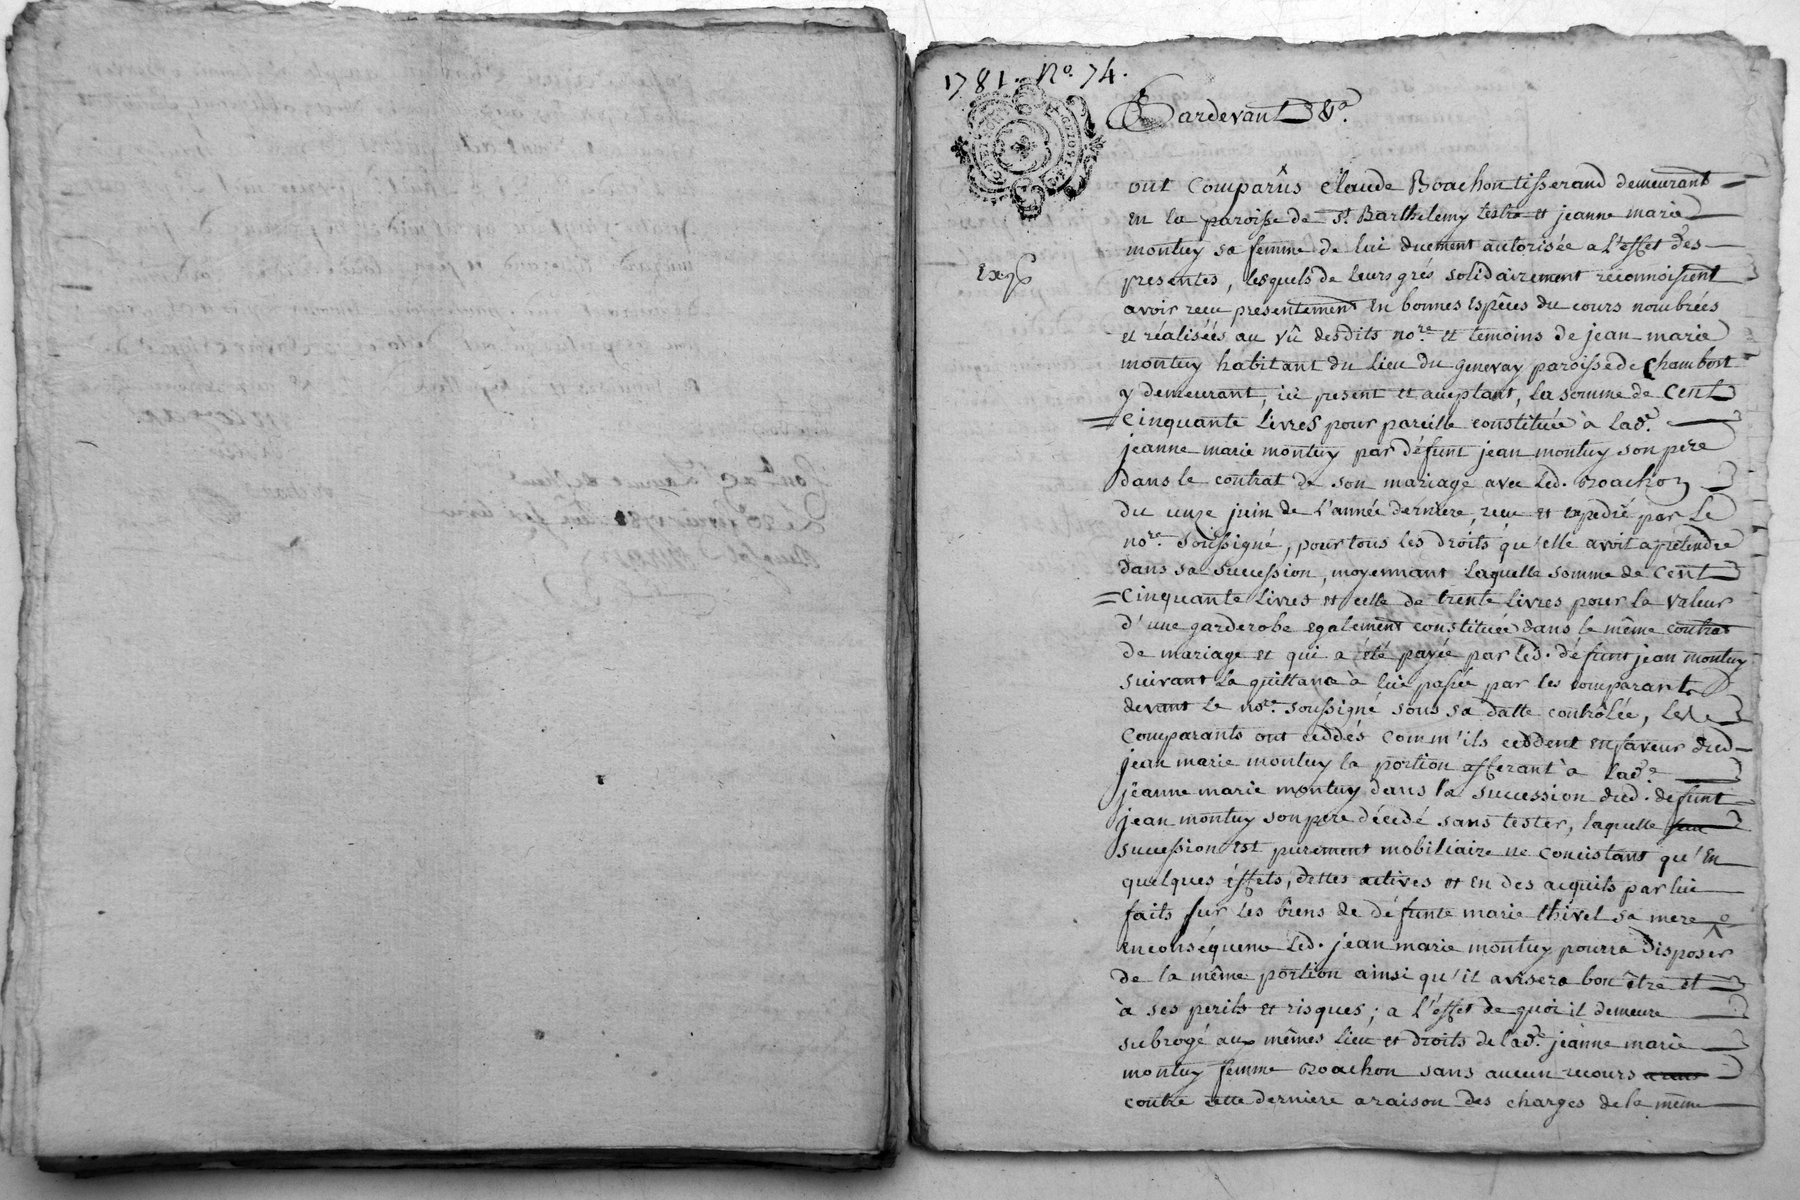 1781. No. 74.
Pardevant &a.
ont Comparûs Claude Boachon tisserand demeurant
en la paroisse de St. Barthelemy lestra et jeanne marie
montuy sa femme de lui duement autorisée a l'effet des
presentes, lesquels de leurs grés solidairement reconnoissent
avoir recu presentement en bonnes espêces du cours nombrées
et réalisées au vû desdits nore. et temoins de jean marie
montuy habitant du Lieu du genevay paroisse de Chambost
y demeurant, ici present et aceptant, la somme de Cent
Cinquante Livres pour pareille constituée à lade.
jeanne marie montuy par défunt jean montuy son pere
dans le contrat de son mariage avec led. Boachon
du unze juin de l'année derniere, recu et expedié par le
nore. soussigné, pour tous les droits qu'elle avoit a pretendre
dans sa succession, moyennant laquelle somme de Cent
Cinquante Livres et celle de trente Livres pour la valeur
d'une garderobe egalement constituée dans le même contrat
de mariage et qui a été payée par led. défunt jean montuy
suivant la quittance à lui passée par les comparants
devant le nore. soussigné sous sa datte contrôlée, les
Comparants ont ceddés comm'ils ceddent en faveur dud.
jean marie montuy la portion afferant à lade.
jeanne marie montuy dans la succession dud. defunt
jean montuy son pere décédé sans tester, laquelle
succession est purement mobiliaire ne concistant qu'en
quelques éffets, dettes actives et en des acquits par lui
faits sur les biens de défunte marie thivel sa mere
en conséquence led. jean marie montuy pourra disposer
de la même portion ainsi qu'il avisera bon être et
à ses perils et risques; a l'effet de quoi il demeure
subrogé aux mêmes lieu et droits de lade. jeanne marie
montuy femme Boachon sans aucun recours
contre cette derniere a raison des charges de la même